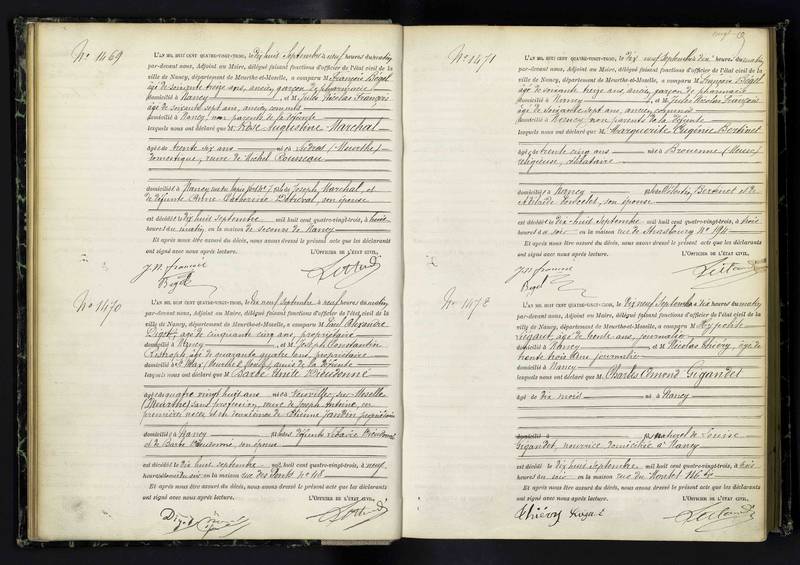 No 1469
L'AN MIL HUIT CENT QUATRE-VINGT-TROIS, le dix huit Septembre à neuf heures du matin
par-devant nous, Adjoint au Maire, délégué faisant fonctions d'officier de l'état civil de la
ville de Nancy, département de Meurthe-et-Moselle, a comparu M François Bégel
âgé de soixante treize ans, ancien garçon de pharmacie
domicilié à Nancy, et M Jules Nicolas François
âgé de soixante sept ans, ancien
domicilié à Nancy, non parents de la défunte
lesquels nous ont déclaré que M Rose Augustine Marchal
âgée de trente six ans née à (Meurthe)
domestique, veuve de Michel Rousseau
domiciliée à Nancy No 7 fille de Joseph Marchal, et
de défunte Anne Catherine son épouse
est décédée le dix huit Septembre mil huit cent quatre-vingt-trois, à
heures du matin en la maison de secours de Nancy
Et après nous être assuré du décès, nous avons dressé le présent acte que les déclarants
ont signé avec nous après lecture. L'OFFICIER DE L'ÉTAT CIVIL,
J. N. François
Bégel
No 1470
L'AN MIL HUIT CENT QUATRE-VINGT-TROIS, le dix neuf Septembre à neuf heures du matin
par-devant nous, Adjoint au Maire, délégué faisant fonctions d'officier de l'état civil de la
ville de Nancy, département de Meurthe-et-Moselle, a comparu M Paul Alexandre
Digot, âgé de cinquante cinq ans, propriétaire
domicilié à Nancy, et M Joseph Constantin
âgé de quarante quatre ans, propriétaire
domicilié à St Max (Meurthe & Moselle) amis de la défunte
lesquels nous ont déclaré que M Barbe Dieudonné
âgée de quatre vingt huit ans née à Neuviller sur Moselle
(Meurthe) sans profession, veuve de Joseph Antoine, en
premières noces et en deuxièmes de Etienne Jandin propriétaire
domiciliée à Nancy fille de défunts Dieudonné
et de Barbe son épouse
est décédée le dix huit septembre mil huit cent quatre-vingt-trois, à neuf
heures du soir en la maison rue des Ponts No 48
Et après nous être assuré du décès, nous avons dressé le présent acte que les déclarants
ont signé avec nous après lecture. L'OFFICIER DE L'ÉTAT CIVIL,
Digot
No 1471
L'AN MIL HUIT CENT QUATRE-VINGT-TROIS, le dix neuf Septembre à dix heures du matin
par-devant nous, Adjoint au Maire, délégué faisant fonctions d'officier de l'état civil de la
ville de Nancy, département de Meurthe-et-Moselle, a comparu M François Bégel
âgé de soixante treize ans, ancien garçon de pharmacie
domicilié à Nancy, et M Jules Nicolas François
âgé de soixante sept ans, ancien
domicilié à Nancy non parents de la défunte
lesquels nous ont déclaré que M Marguerite Eugénie Bertinet
âgée de trente cinq ans née à Brouenne (Meuse)
religieuse, célibataire
domiciliée à Nancy fille de Bertinet et de
Adélaïde son épouse
est décédée le dix-huit Septembre mil huit cent quatre-vingt-trois, à trois
heures du soir en la maison rue de Strasbourg No 194
Et après nous être assuré du décès, nous avons dressé le présent acte que les déclarants
ont signé avec nous après lecture. L'OFFICIER DE L'ÉTAT CIVIL,
J. N. François
Bégel
No 1472
L'AN MIL HUIT CENT QUATRE-VINGT-TROIS, le dix neuf Septembre à dix heures du matin
par-devant nous, Adjoint au Maire, délégué faisant fonctions d'officier de l'état civil de la
ville de Nancy, département de Meurthe-et-Moselle, a comparu M Hypolite
âgé de trente ans, journalier
domicilié à Nancy, et M Nicolas Thiéry, âgé de
trente trois ans journalier
domicilié à Nancy
lesquels nous ont déclaré que M Charles Edmond Gigandet
âgé de dix mois né à Nancy
domicilié à fils naturel de Louise
Gigandet, nourrice domiciliée à Nancy
est décédé le dix huit Septembre mil huit cent quatre-vingt-trois, à trois
heures du soir en la maison rue du Montet No
Et après nous être assuré du décès, nous avons dressé le présent acte que les déclarants
ont signé avec nous après lecture. L'OFFICIER DE L'ÉTAT CIVIL,
Thiéry